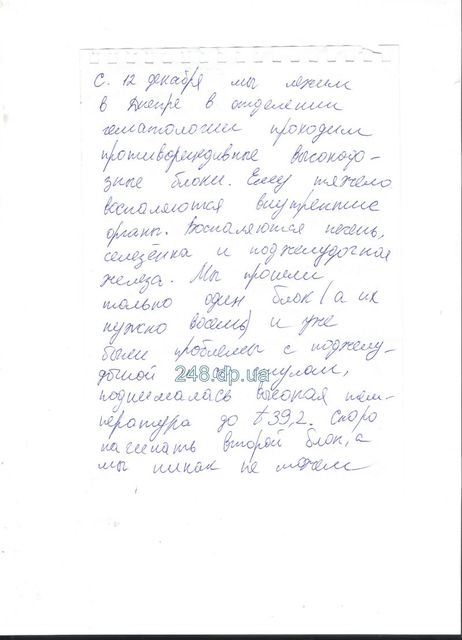 С. 12 декабря мы лежим
в Днепре в отделении
гематологии проходим
противорецидивные высокодо-
зные блоки. Ему тяжело
воспаляются внутренние
органы. Воспаляются печень,
селезёнка и поджелудочная
железа. Мы прошли
только один блок (а их
нужно восемь) и уже
были проблемы с поджелу-
дочной
248.dp.ua
поднималась высокая тем-
пература до t 39,2. Скоро
начинать второй блок, а
мы никак не можем